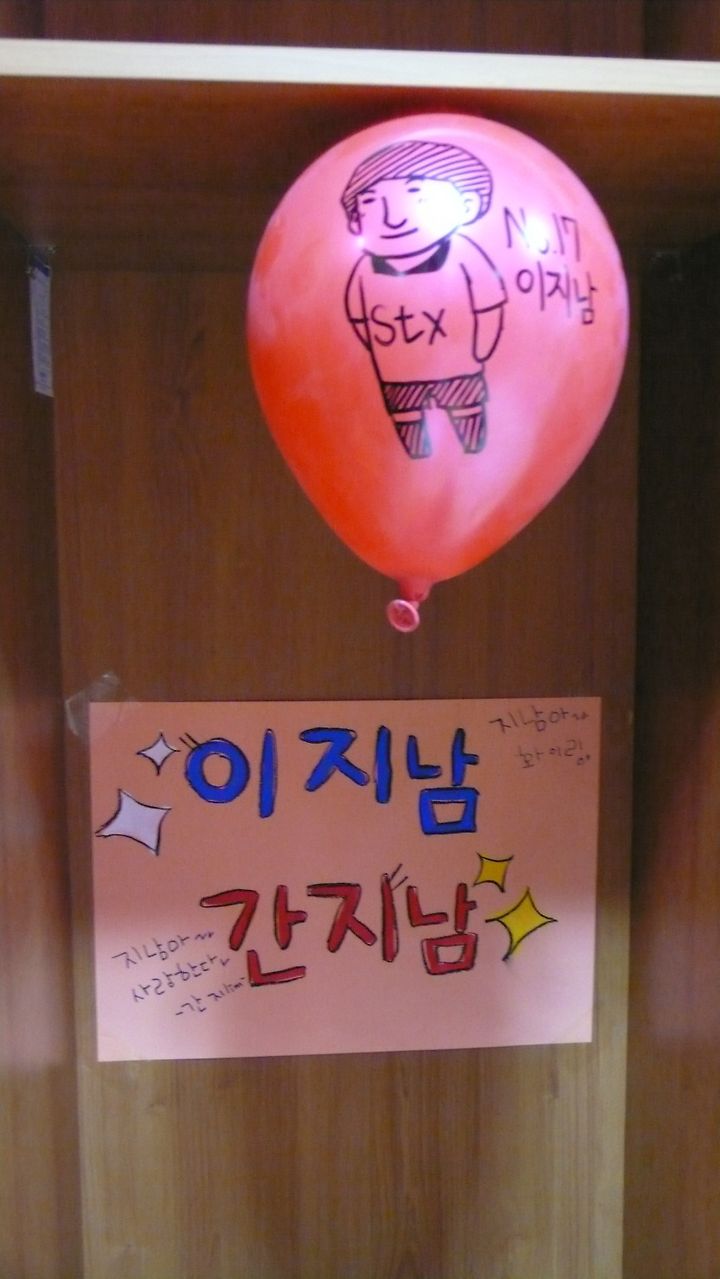 No.17
이지남
Stx
지남아~
화이링
이지남
간지남
지남아~
사랑한다